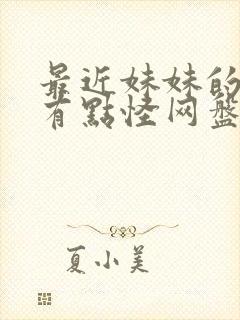 最近妹妹的
有點怪网盘
夏小美